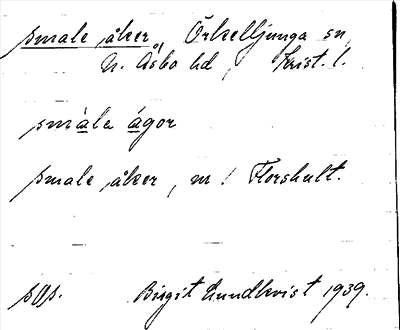 smale åker, Örkelljunga sn,
N. Åsbo hd, Krist. l.
småla ågor
smale åker, m! Florshult.
sOs. Birgit Lundkvist 1939.